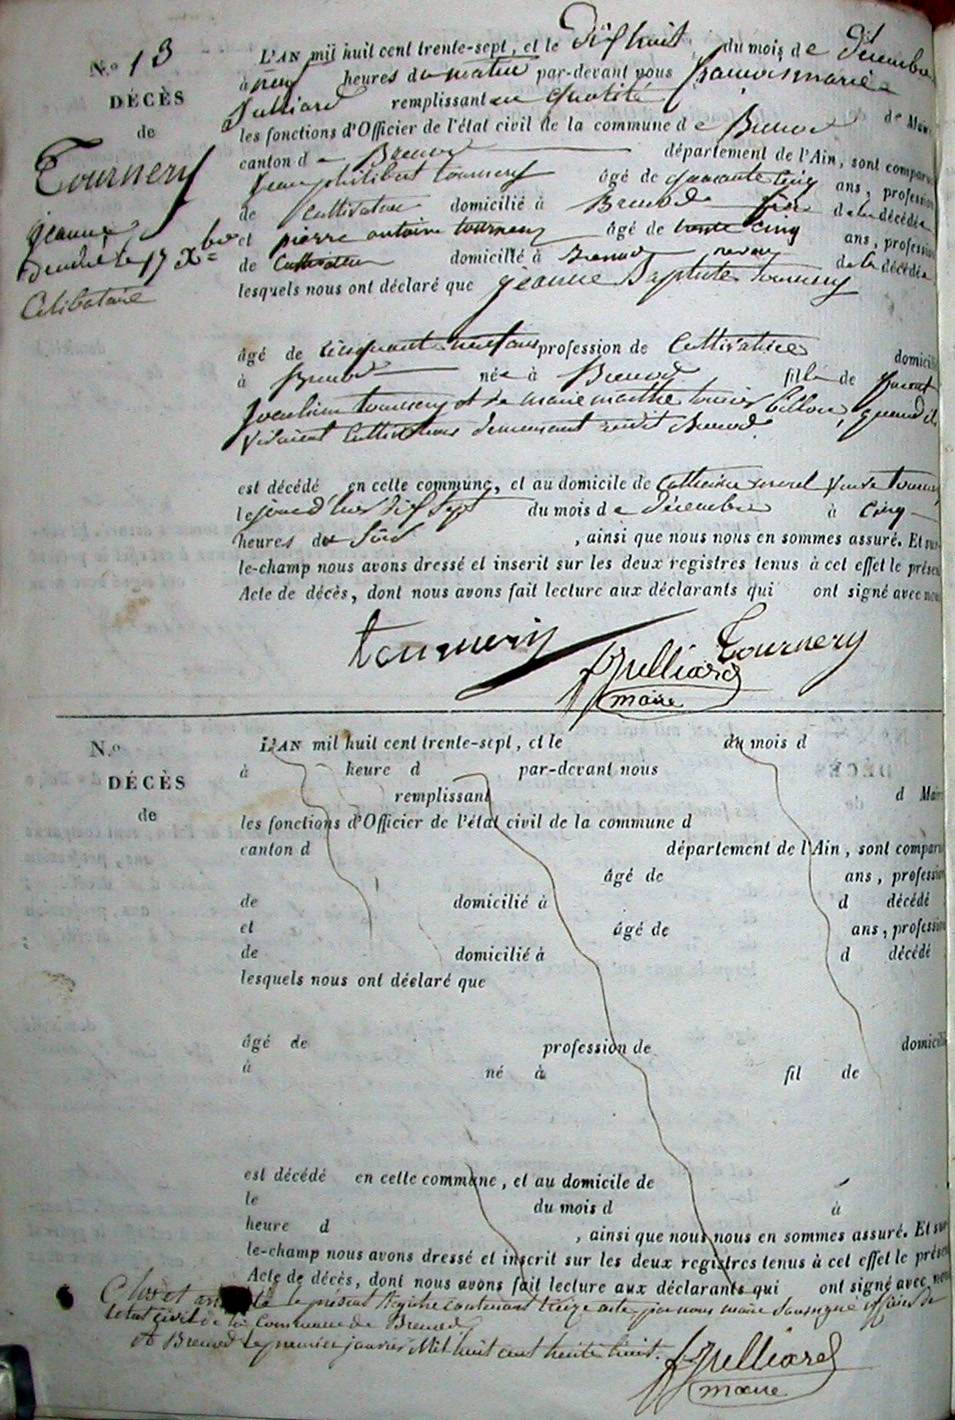 N.º 13
DÉCÈS
de
Tournery
jeanne
décédée le 17 Xbre
Célibataire
L'AN mil huit cent trente-sept, et le dix huit du mois de décembre
à neuf heures du matin par-devant nous françois marie
Julliard remplissant en qualité de Maire
les fonctions d'Officier de l'état civil de la commune de Brenod
canton de Brenod département de l'Ain, sont comparus
Jean philibert tournery âgé de quarante cinq ans, profession
de Cultivateur domicilié à Brenod de la décédée
et pierre antoine tournery âgé de trente cinq ans, profession
de Cultivateur domicilié à Brenod neveu de la décédée
lesquels nous ont déclaré que jeanne Baptiste tournery
âgé de cinquante neuf ans profession de Cultivatrice domicilié
à Brenod née à Brenod fille de
joachim tournery et de marie marthe quand ils
vivaient Cultivateurs demeurant audit Brenod
est décédé en cette commune, et au domicile de Catherine veuve tournery
le jourd'hier dix sept du mois de décembre à cinq
heures du soir, ainsi que nous nous en sommes assuré. Et sur-
le-champ nous avons dressé et inscrit sur les deux registres tenus à cet effet le présent
Acte de décès, dont nous avons fait lecture aux déclarants qui ont signé avec nous
tournery Tournery
Julliard
maire
N.º
DÉCÈS
de
L'AN mil huit cent trente-sept, et le du mois d
à heure d par-devant nous
remplissant d Maire
les fonctions d'Officier de l'état civil de la commune d
canton d département de l'Ain, sont comparus
âgé de ans, profession
de domicilié à d décédé
et âgé de ans, profession
de domicilié à d décédé
lesquels nous ont déclaré que
âgé de profession de domicilié
à né à fil de
est décédé en cette commune, et au domicile de
le du mois d à
heure d , ainsi que nous nous en sommes assuré. Et sur-
le-champ nous avons dressé et inscrit sur les deux registres tenus à cet effet le présent
Acte de décès, dont nous avons fait lecture aux déclarants qui ont signé avec nous
Clos et arrêté le présent Registre contenant treize acte par nous maire soussigné officier de
l'état civil de la Commune de Brenod
A Brenod le premier janvier Mil huit cent trente huit.
Julliard
maire